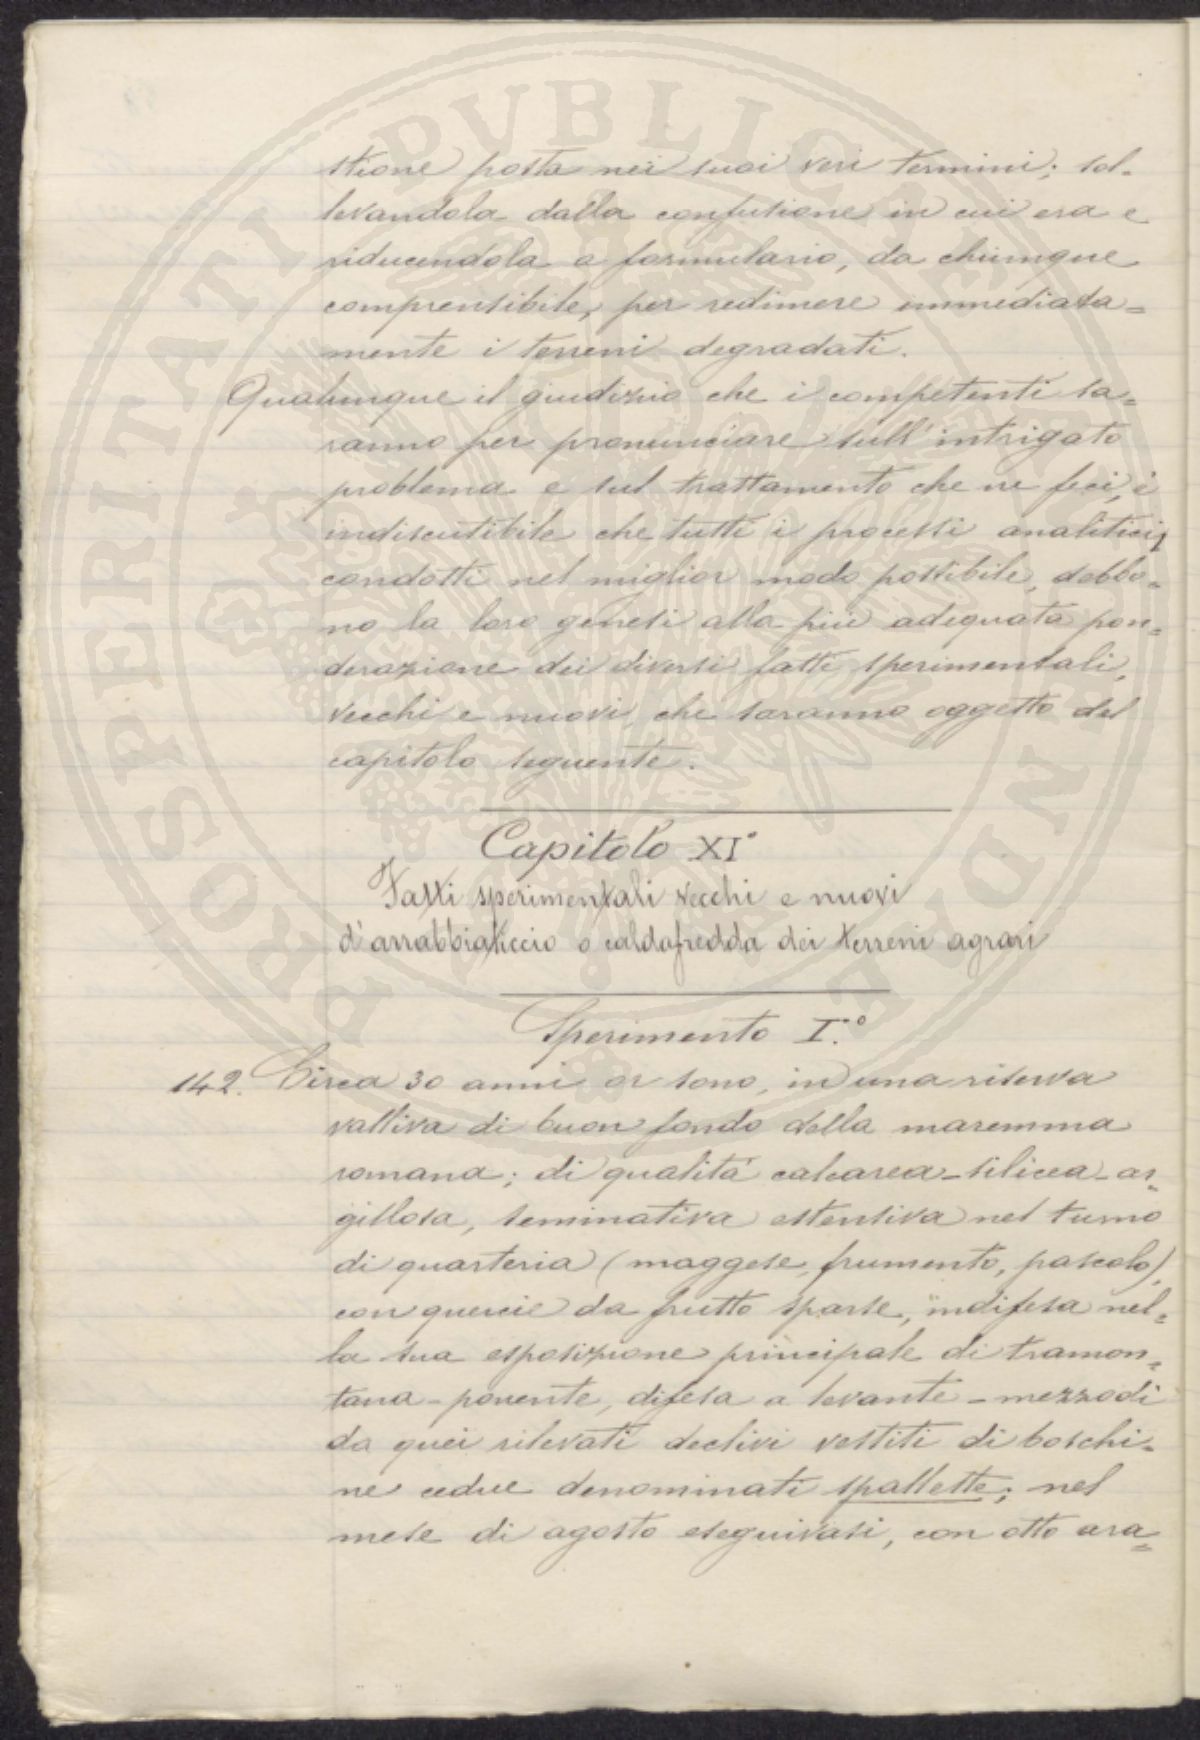 stione posta nei suoi veri termini; sol-
levandola dalla confusione in cui era e
riducendola a formulario, da chiunque
comprensibile, per redimere immediata=
mente i terreni degradati.
Qualunque il giudizio che i competenti sa=
ranno per pronunciare sull'intrigato
problema e sul trattamento che ne feci, è
indiscutibile che tutti i processi analitici,
condotti nel miglior modo possibile, debbo=
no la loro genesi alla più adeguata pon=
derazione dei diversi fatti sperimentali,
vecchi e nuovi, che saranno oggetto del
capitolo seguente.
Capitolo XI°
Fatti sperimentali vecchi e nuovi
d'arrabbiaticcio o caldafredda dei terreni agrari
Sperimento I.°
142. Circa 30 anni or sono, in una riserva
valliva di buon fondo della maremma
romana; di qualità calcarea-silicea-ar=
gillosa, seminativa estensiva nel turno
di quarteria (maggese, frumento, pascolo),
con quercie da frutto sparse, indifesa nel=
la sua esposizione principale di tramon=
tana-ponente, difesa a levante-mezzodi
da quei rilevati declivi vestiti di boschi=
ne cedue denominati spallette; nel
mese di agosto eseguivasi, con otto ara=
PROSPERITATI PVBLICAE AVGENDAE